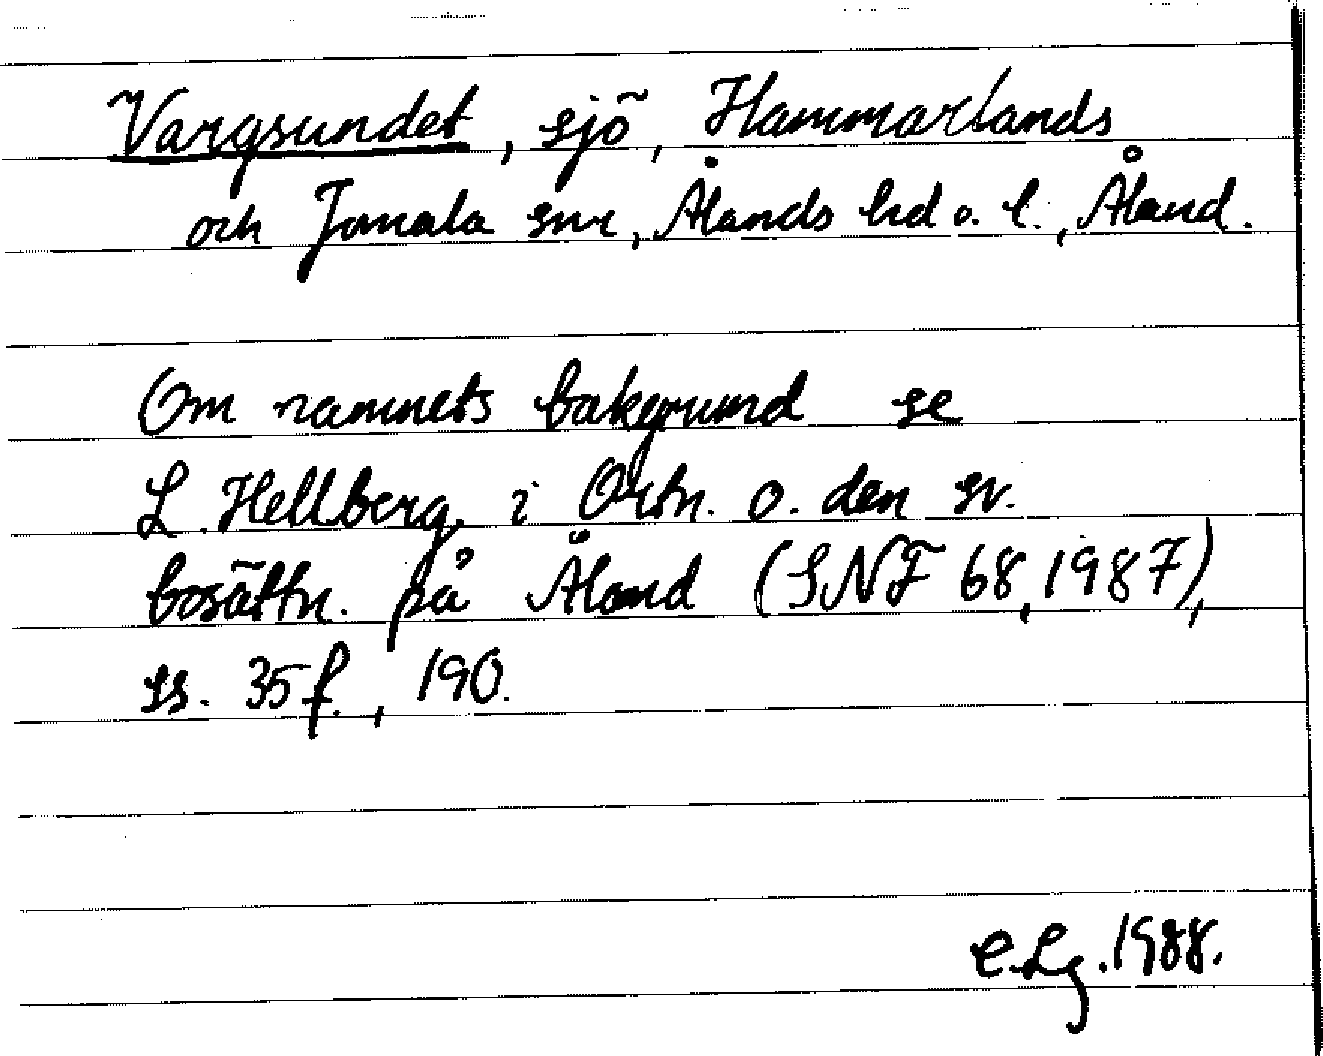 Vargsundet, sjö, Hammarlands
och Jomala snr, Ålands hd o. l., Åland.
Om namnets bakgrund se
L. Hellberg i Ortn. o. den sv.
bosättn. på Åland (SNF 68, 1987),
ss. 35 f., 190.
C. Lg. 1988.